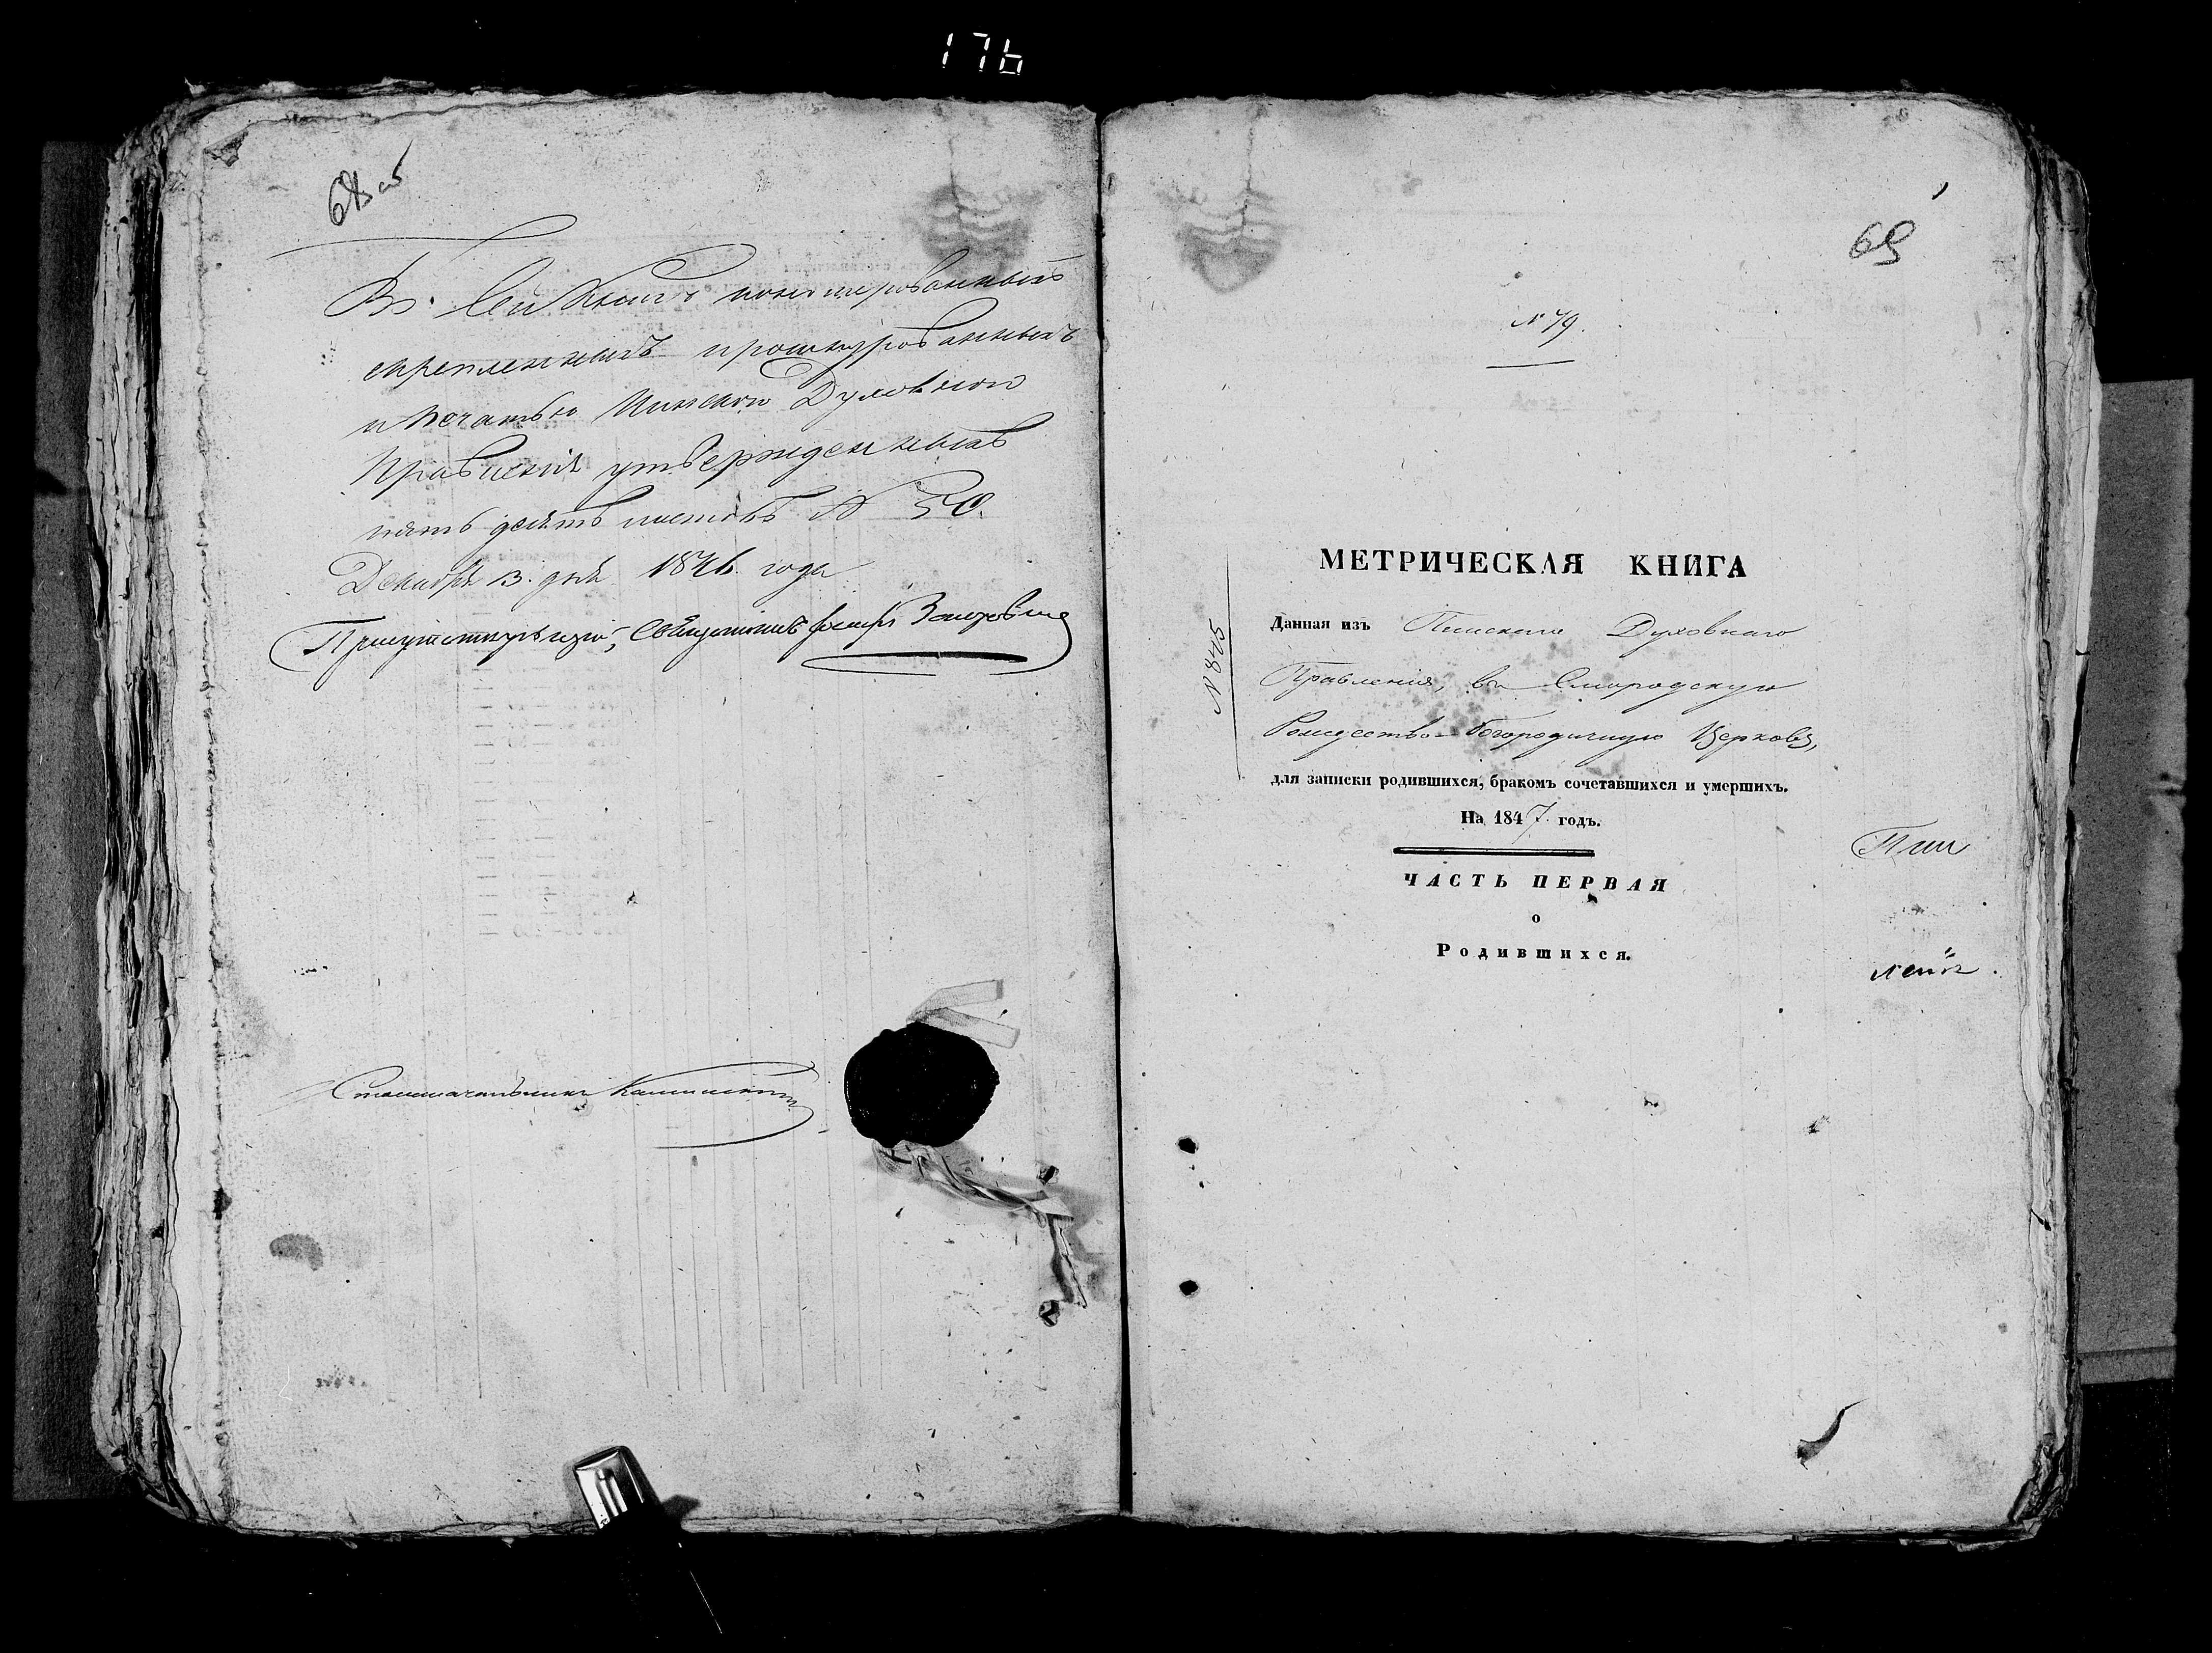 176
68 об
Въ сей Книгѣ нономерованныхъ
скрепленныхъ прошнурованныхъ
и Печатью Пинскаго Духовнаго
Правленія утвержденныхъ
пять десятъ листовъ N 50.
Декабря 13. дня 1846 года
Присутствующій, Священникъ
Столоначальникъ
69
N 79.
N 845
МЕТРИЧЕСКАЯ КНИГА
Данная изъ Пинскаго Духовнаго
Правленія, въ Смородскую
Рождество-Богородичную Церковь,
для записки родившихся, бракомъ сочетавшихся и умершихъ.
На 1847 годъ.
ЧАСТЬ ПЕРВАЯ
о
Родившихся.
Пин